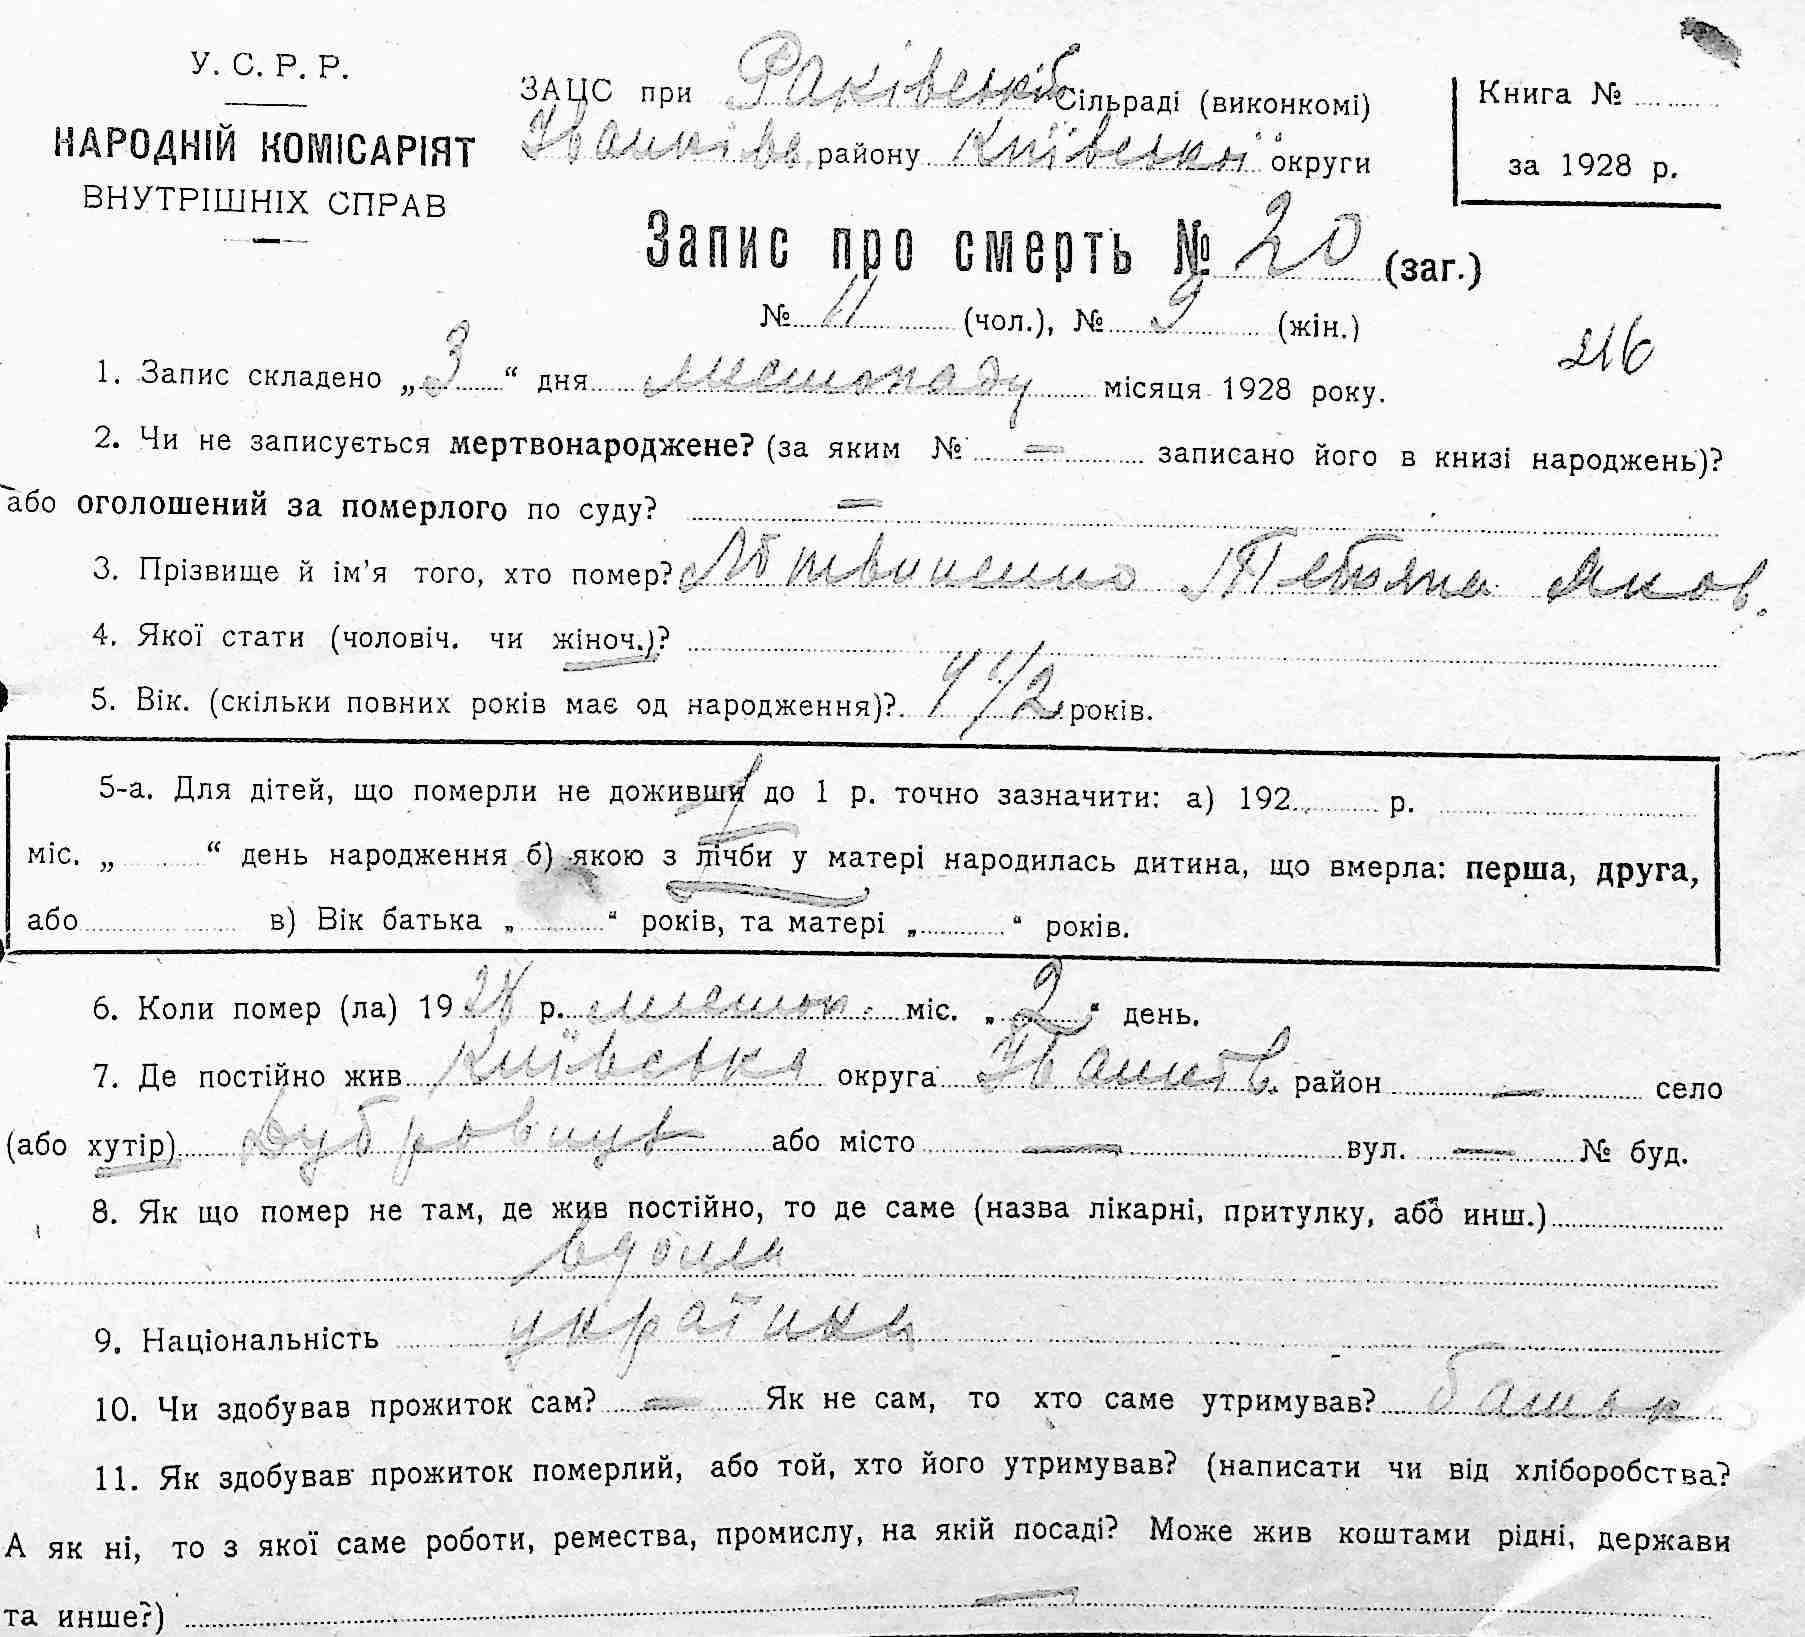 У. С. Р. Р.
НАРОДНІЙ КОМІСАРІЯТ
ВНУТРІШНІХ СПРАВ
ЗАЦС при Раківській Сільраді (виконкомі)
Іванків. району Київської округи
Книга №
за 1928 р.
Запис про смерть № 20 (заг.)
№ 11 (чол.), № 9 (жін.)
216
1. Запис складено „3“ дня листопаду місяця 1928 року.
2. Чи не записується мертвонароджене? (за яким № — записано його в книзі народжень)?
або оголошений за померлого по суду? —
3. Прізвище й ім’я того, хто помер? Літвиненко Тетяна Яков.
4. Якої стати (чоловіч. чи жіноч.)?
5. Вік. (скільки повних років має од народження)? 4 1/2 років.
5-а. Для дітей, що померли не доживши до 1 р. точно зазначити: а) 192 р.
міс. „ “ день народження б) якою з лічби у матері народилась дитина, що вмерла: перша, друга,
або в) Вік батька „ “ років, та матері „ “ років.
6. Коли помер (ла) 1928 р. листоп. міс. „2“ день.
7. Де постійно жив Київська округа Іванків. район — село
(або хутір) або місто — вул. — № буд.
8. Як що помер не там, де жив постійно, то де саме (назва лікарні, притулку, або инш.)
вдома
9. Національність українка
10. Чи здобував прожиток сам? — Як не сам, то хто саме утримував? батько
11. Як здобував прожиток померлий, або той, хто його утримував? (написати чи від хліборобства?
А як ні, то з якої саме роботи, ремества, промислу, на якій посаді? Може жив коштами рідні, держави
та инше?) —